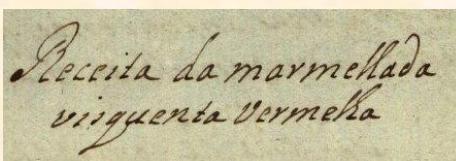 Receita da marmellada
visquenta vermelha